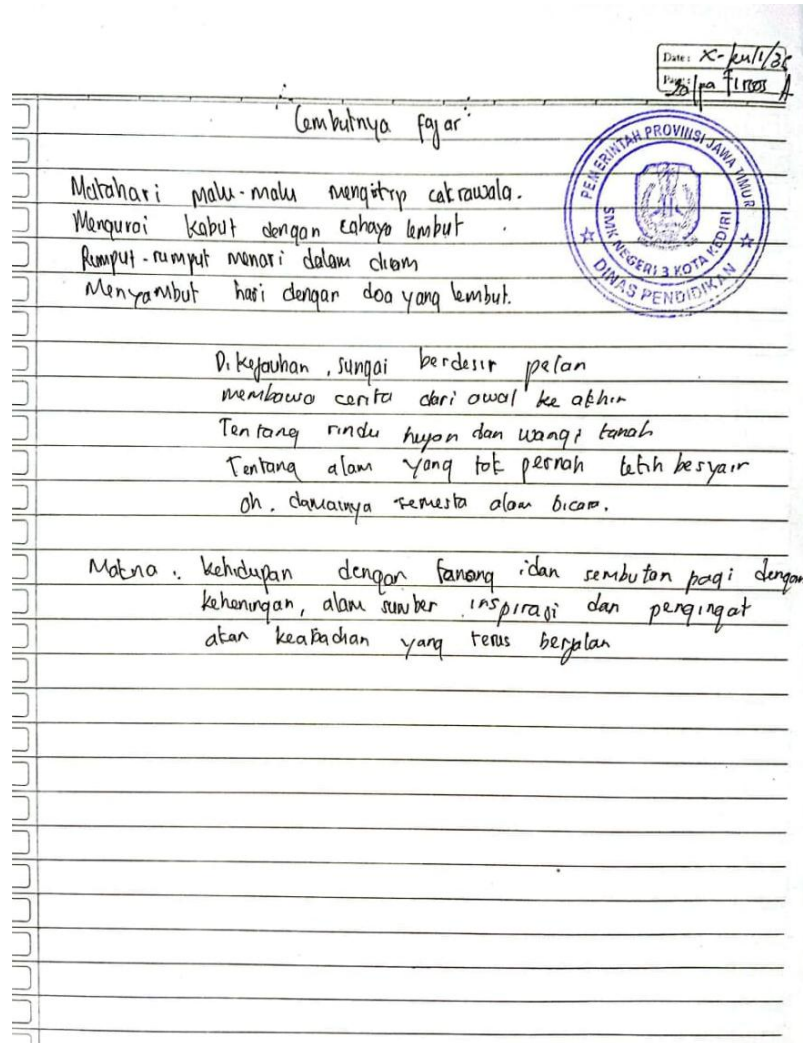 Date: X-
Page:
Lembutnya fajar
PEMERINTAH PROVINSI JAWA TIMUR
SMK NEGERI 3 KOTA KEDIRI
DINAS PENDIDIKAN
Matahari malu-malu mengitip cakrawala.
Mengurai kabut dengan cahaya lembut.
Rumput-rumput menari dalam diam
Menyambut hari dengan doa yang lembut.
Di kejauhan, sungai berdesir pelan
membawa cerita dari awal ke akhir
Tentang rindu hujan dan wangi tanah
Tentang alam yang tak pernah letih besyair
oh. damainya semesta alam bicara.
Makna: kehidupan dengan tenang dan sembutan pagi dengan
keheningan, alam sumber inspirasi dan pengingat
akan keabadian yang terus berjalan